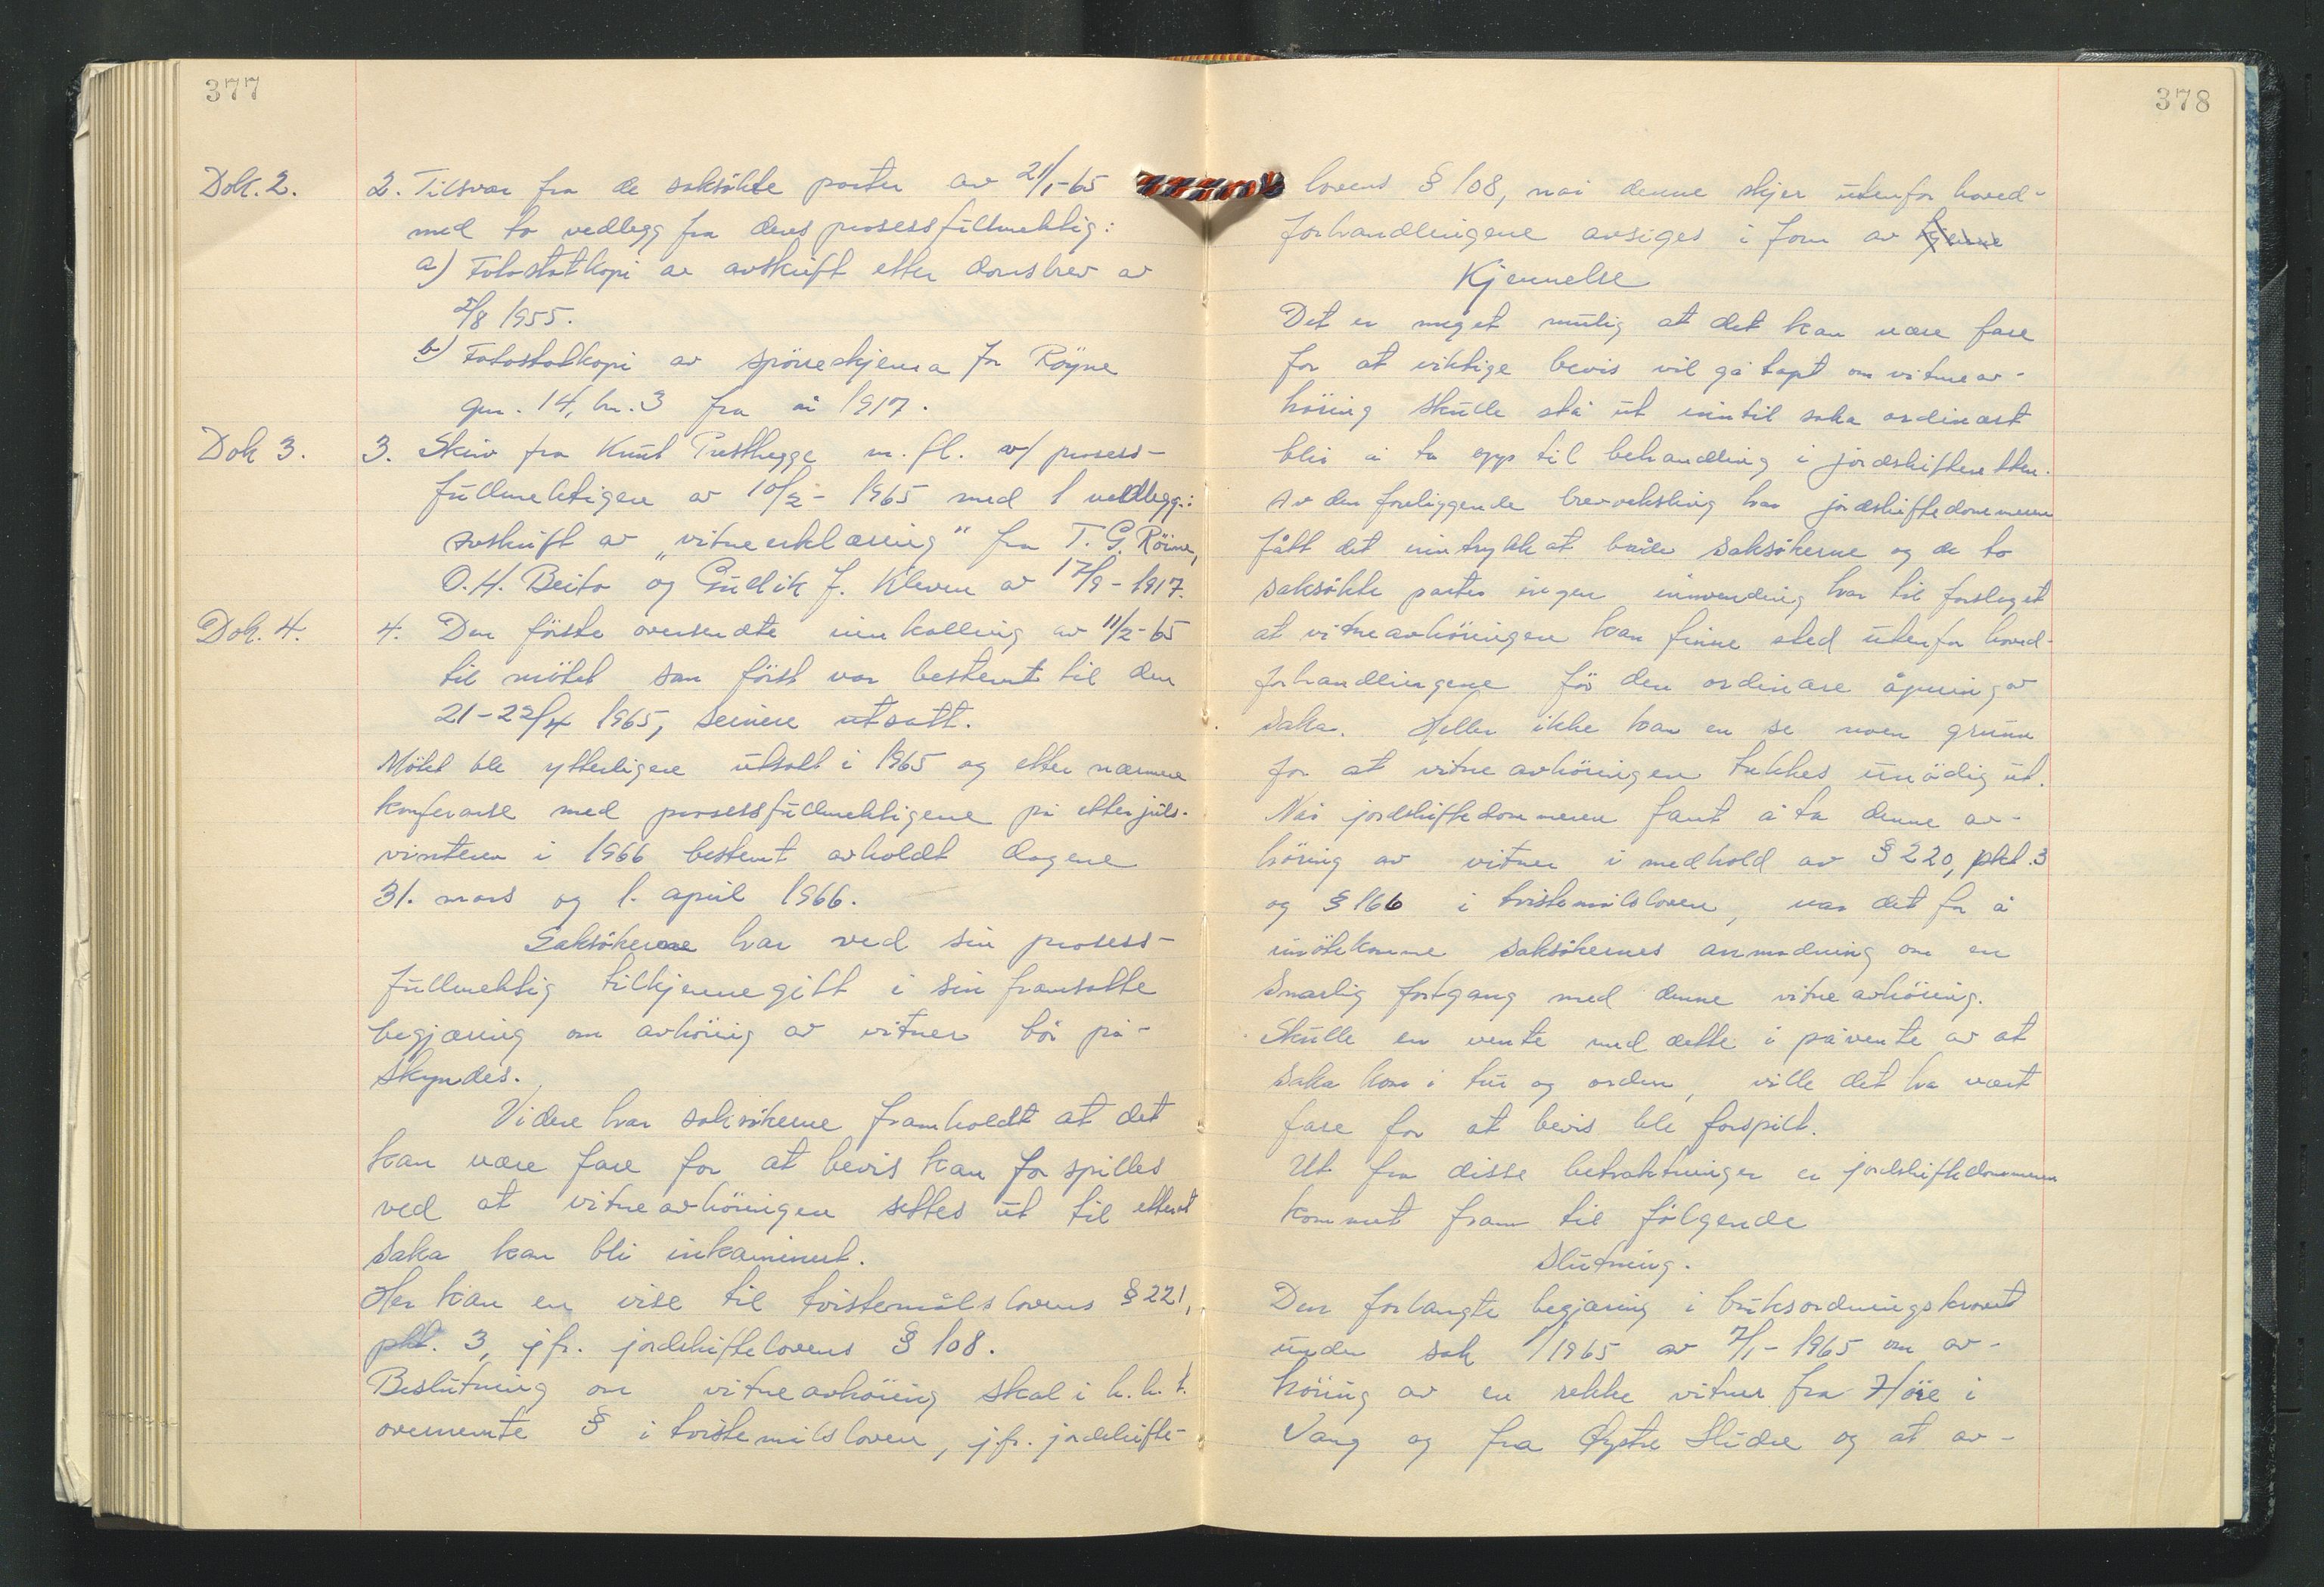 377
Dok. 2.
2. Tilsvar fra de saksökte parter av 21/1-65
med to vedlegg fra deres prosessfullmektig:
a) Fotostatkopi av avskrift etter domsbrev av
2/8 1955.
b) Fotostatkopi av spörreskjema for Röyne
gnr. 14, bnr. 3 fra år 1917.
Dok 3.
3. Skriv fra Knut Presthegge m. fl. v/ prosess-
fullmektigen av 10/2- 1965 med 1 vedlegg:
avskrift av „vitneerklæring" fra T. G. Röine,
O. H. Beito og Gudik J. Kleven av 17/9 - 1917.
Dok. 4.
4. Den förste oversendte innkalling av 11/2-65
til mötet som först var bestemt til den
21-22/4 1965, seinere utsatt.
Mötet ble ytterligere utsatt i 1965 og etter nærmere
konferanse med prosessfullmektigene på etterjuls-
vinteren i 1966 bestemt avholdt dagene
31. mars og 1. april 1966.
Saksökerne har ved sin prosess-
fullmektig tilkjennegitt i sin framsatte
begjæring om avhöring av vitner bör på-
skyndes.
Videre har saksökerne framholdt at det
kan være fare for at bevis kan forspilles
ved at vitneavhöringen settes ut til etter at
saka kan bli inkaminert.
Her kan en vise til tvistemålslovens § 221,
pkt. 3, jfr. jordskiftelovens § 108.
Beslutning om vitneavhöring skal i h.h.t.
ovennemte § i tvistemålsloven, jfr. jordskifte-
378
lovens § 108, når denne skjer utenfor hoved-
forhandlingene avsiges i form av kjenne
Kjennelse
Det er meget mulig at det kan være fare
for at viktige bevis vil gå tapt om vitneav-
höring skulle stå ut inntil saka ordinært
blir å ta opp til behandling i jordskifteretten.
Av den foreliggende brevveksling har jordskiftedommeren
fått det inntrykk at både saksökerne og de to
saksökte parter ingen innvending har til forslaget
at vitneavhöringen kan finne sted utenfor hoved-
forhandlingene för den ordinære åpning av
saka. Heller ikke kan en se noen grunn
for at vitneavhöringen trekkes unödig ut.
Når jordskiftedommeren fant å ta denne av-
höring av vitner i medhold av § 220, pkt. 3
og § 166 i tvistemålsloven, var det for å
imötekomme saksökernes anmodning om en
snarlig fortgang med denne vitneavhöring.
Skulle en vente med dette i påvente av at
saka kom i tur og orden, ville det ha vært
fare for at bevis ble forspilt.
Ut fra disse betraktninger er jordskiftedommeren
kommet fram til fölgende
Slutning.
Den forlangte begjæring i bruksordningskravet
under sak 1/1965 av 7/1- 1965 om av-
höring av en rekke vitner fra Höre i
Vang og fra Öystre Slidre og at av-